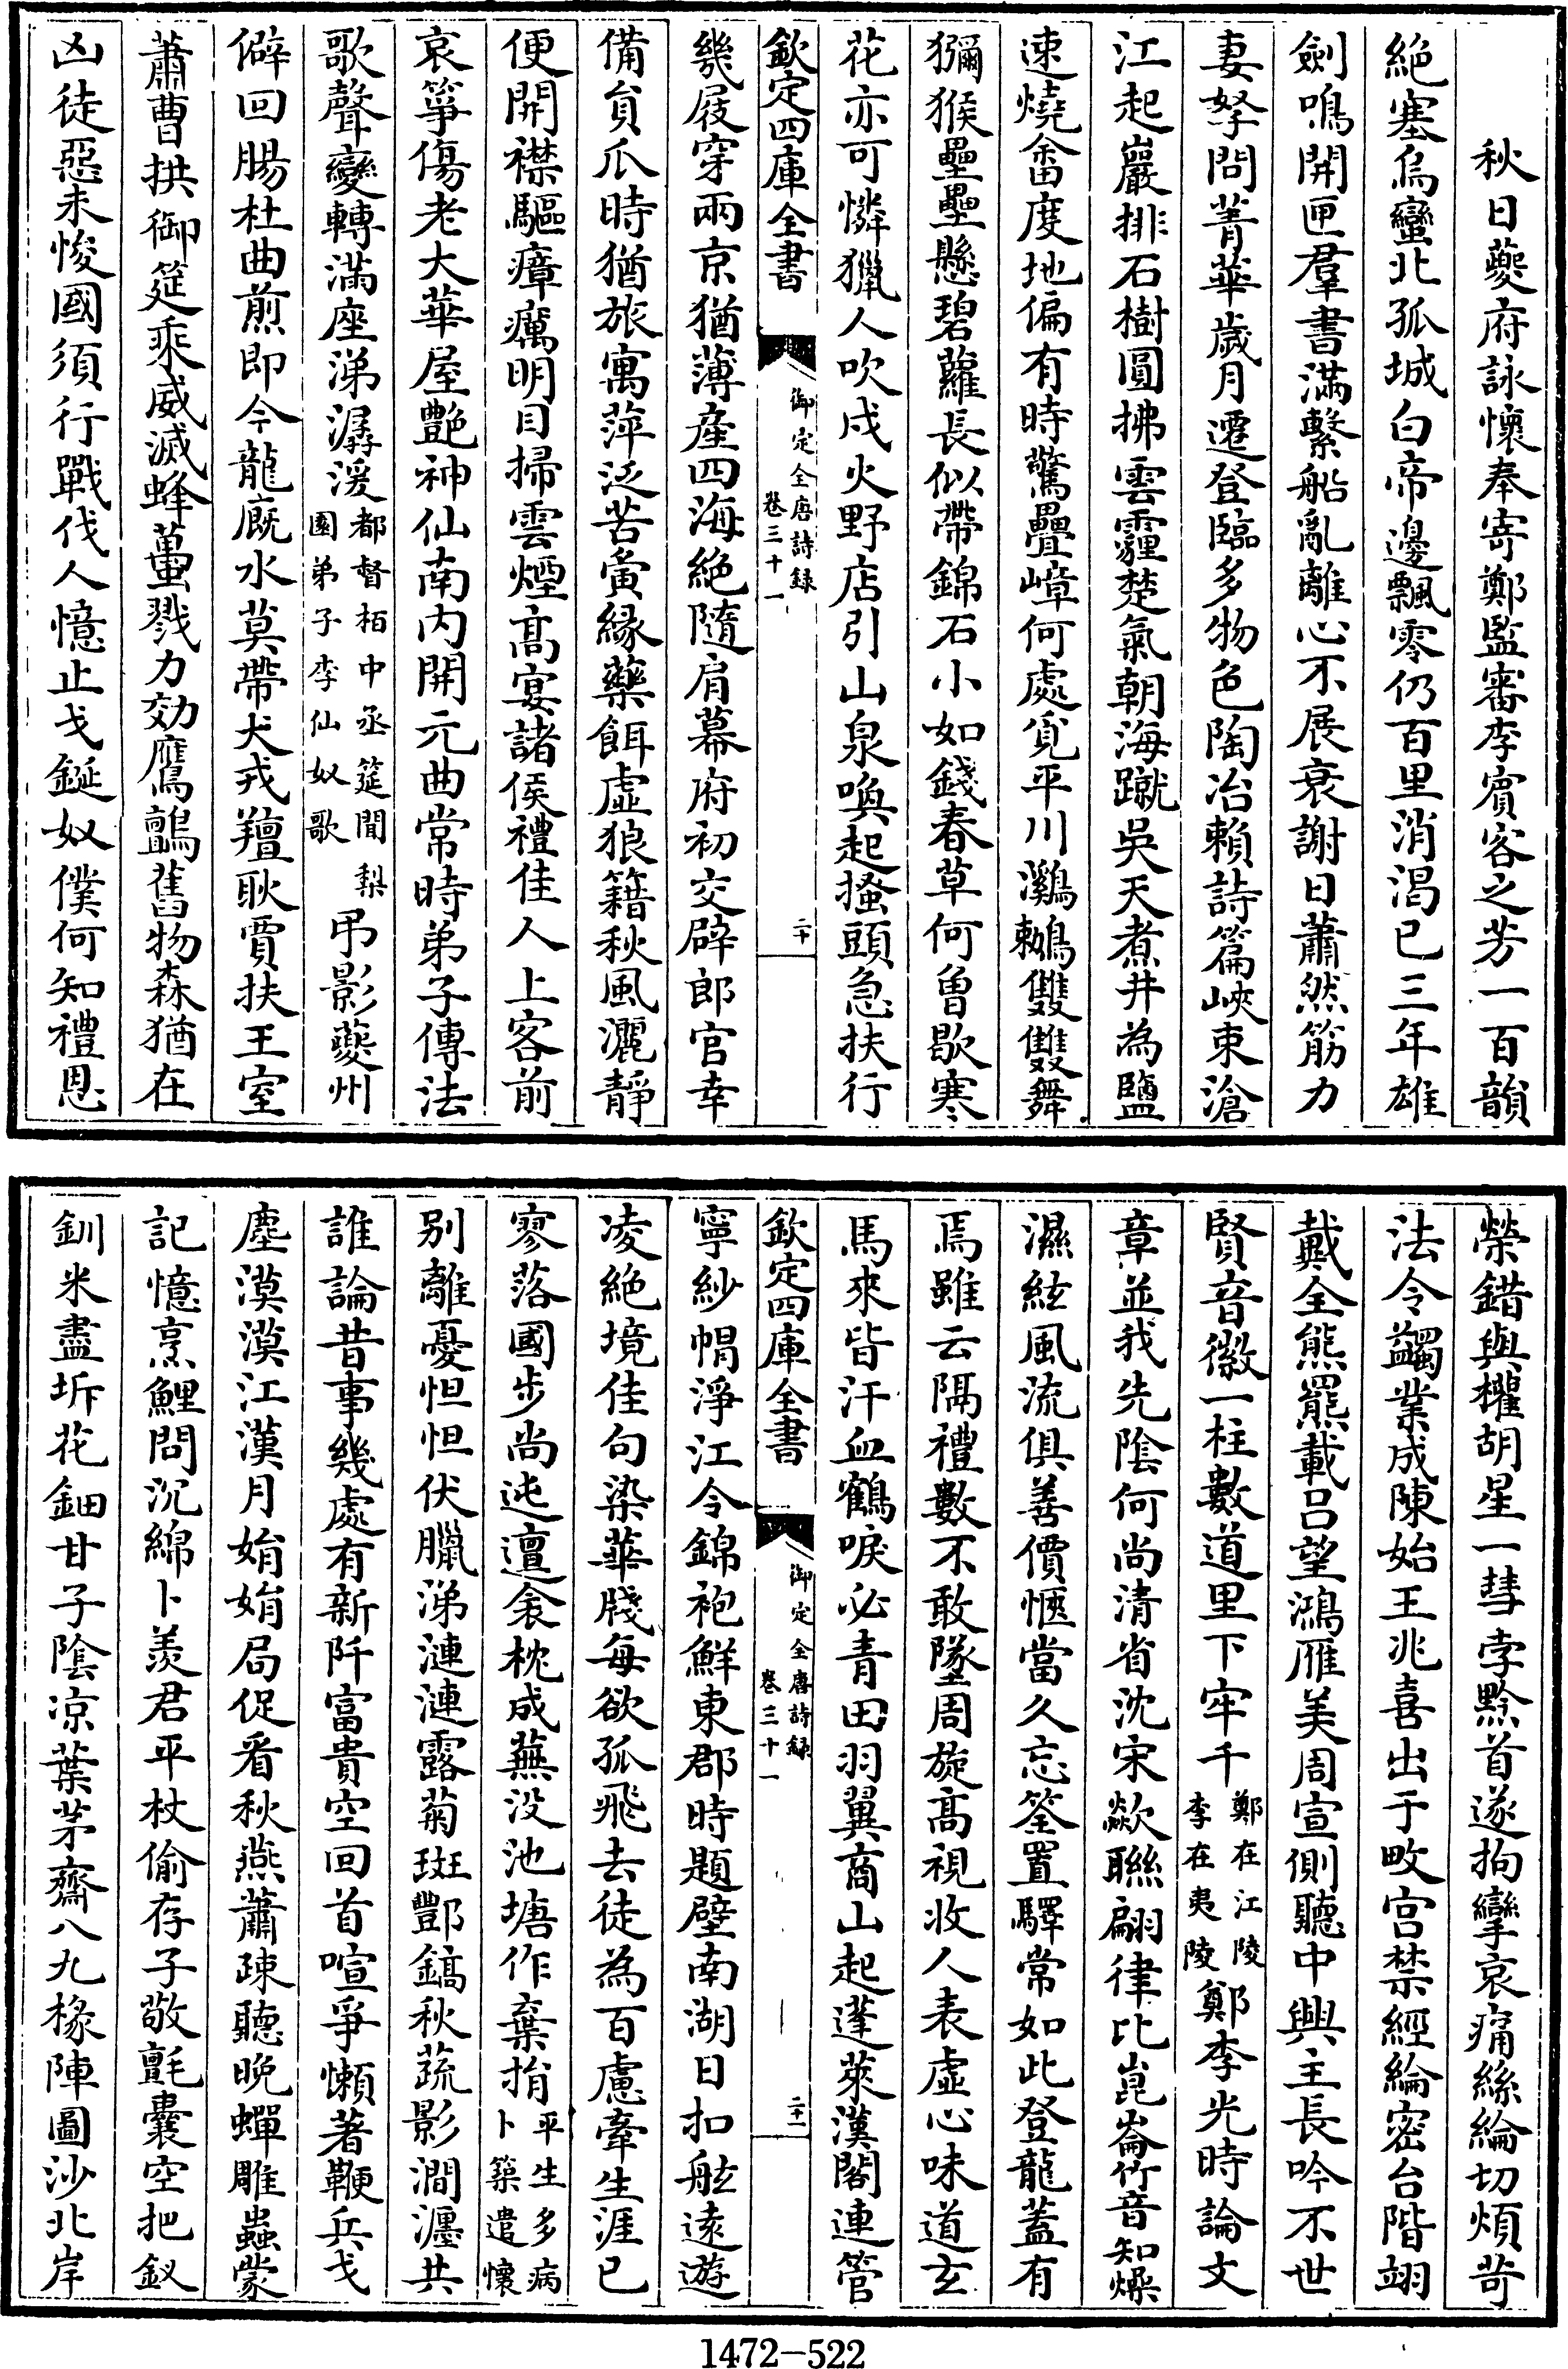 秋日夔府詠懷奉寄鄭監審李賓客之芳一百韻
絕塞烏蠻北孤城白帝邊飄零仍百里消渴已三年雄
劍鳴開匣羣書滿繫船亂離心不展衰謝日蕭然筋力
妻孥問菁華歲月遷登臨多物色陶冶賴詩篇峽束滄
江起巖排石樹圓拂雲霾楚氣朝海蹴吳天煮井為鹽
速燒畬度地偏有時驚疊嶂何處覓平川鸂鶒雙雙舞
獼猴壘壘懸碧蘿長似帶錦石小如錢春草何曾歇寒
花亦可憐獵人吹戍火野店引山泉喚起搔頭急扶行
欽定四庫全書
御定全唐詩録
卷三十一
二十
幾屐穿兩京猶薄產四海絕隨肩幕府初交辟郎官幸
備員爪時猶旅寓萍泛苦夤緣藥餌虛狼籍秋風灑靜
便開襟驅瘴癘明目掃雲煙髙宴諸侯禮佳人上客前
哀箏傷老大華屋艶神仙南内開元曲常時弟子傳法
歌聲變轉滿座涕潺湲都督栢中丞筵聞梨園弟子李仙奴歌弔影夔州
僻回腸杜曲煎即今龍厩水莫帶犬戎羶耿賈扶王室
蕭曹拱御筵乘威滅蜂蠆戮力効鷹鸇舊物森猶在
凶徒惡未悛國須行戰伐人憶止戈鋋奴僕何知禮恩
榮錯與權胡星一彗孛黔首遂拘攣哀痛絲綸切煩苛
法令蠲業成陳始王兆喜出于畋宫禁經綸密台階翊
戴全熊羆載吕望鴻雁美周宣側聽中興主長吟不世
賢音徽一柱數道里下牢千鄭在江陵李在夷陵鄭李光時論文
章並我先陰何尚清省沈宋歘聯翩律比崑崙竹音知燥
濕絃風流俱善價愜當久忘筌置驛常如此登龍蓋有
焉雖云隔禮數不敢墜周旋髙視收人表虛心味道玄
馬來皆汗血鶴唳必青田羽翼商山起蓬萊漢閣連管
欽定四庫全書
御定全唐詩録
卷三十一
二十一
寧紗帽淨江令錦袍鮮東郡時題壁南湖日扣舷遠遊
凌絕境佳句染華牋每欲孤飛去徒為百慮牽生涯已
寥落國步尚迍邅衾枕成蕪没池塘作棄捐平生多病卜築遣懷
别離憂怛怛伏臘涕漣漣露菊斑酆鎬秋蔬影澗瀍共
誰論昔事幾處有新阡富貴空回首喧爭懶著鞭兵戈
塵漠漠江漢月娟娟局促看秋燕蕭疎聽晚蟬雕蟲蒙
記憶烹鯉問沉綿卜羡君平杖偷存子敬氈囊空把釵
釧米盡坼花鈿甘子陰凉葉茅齋八九椽陣圖沙北岸
1472-522